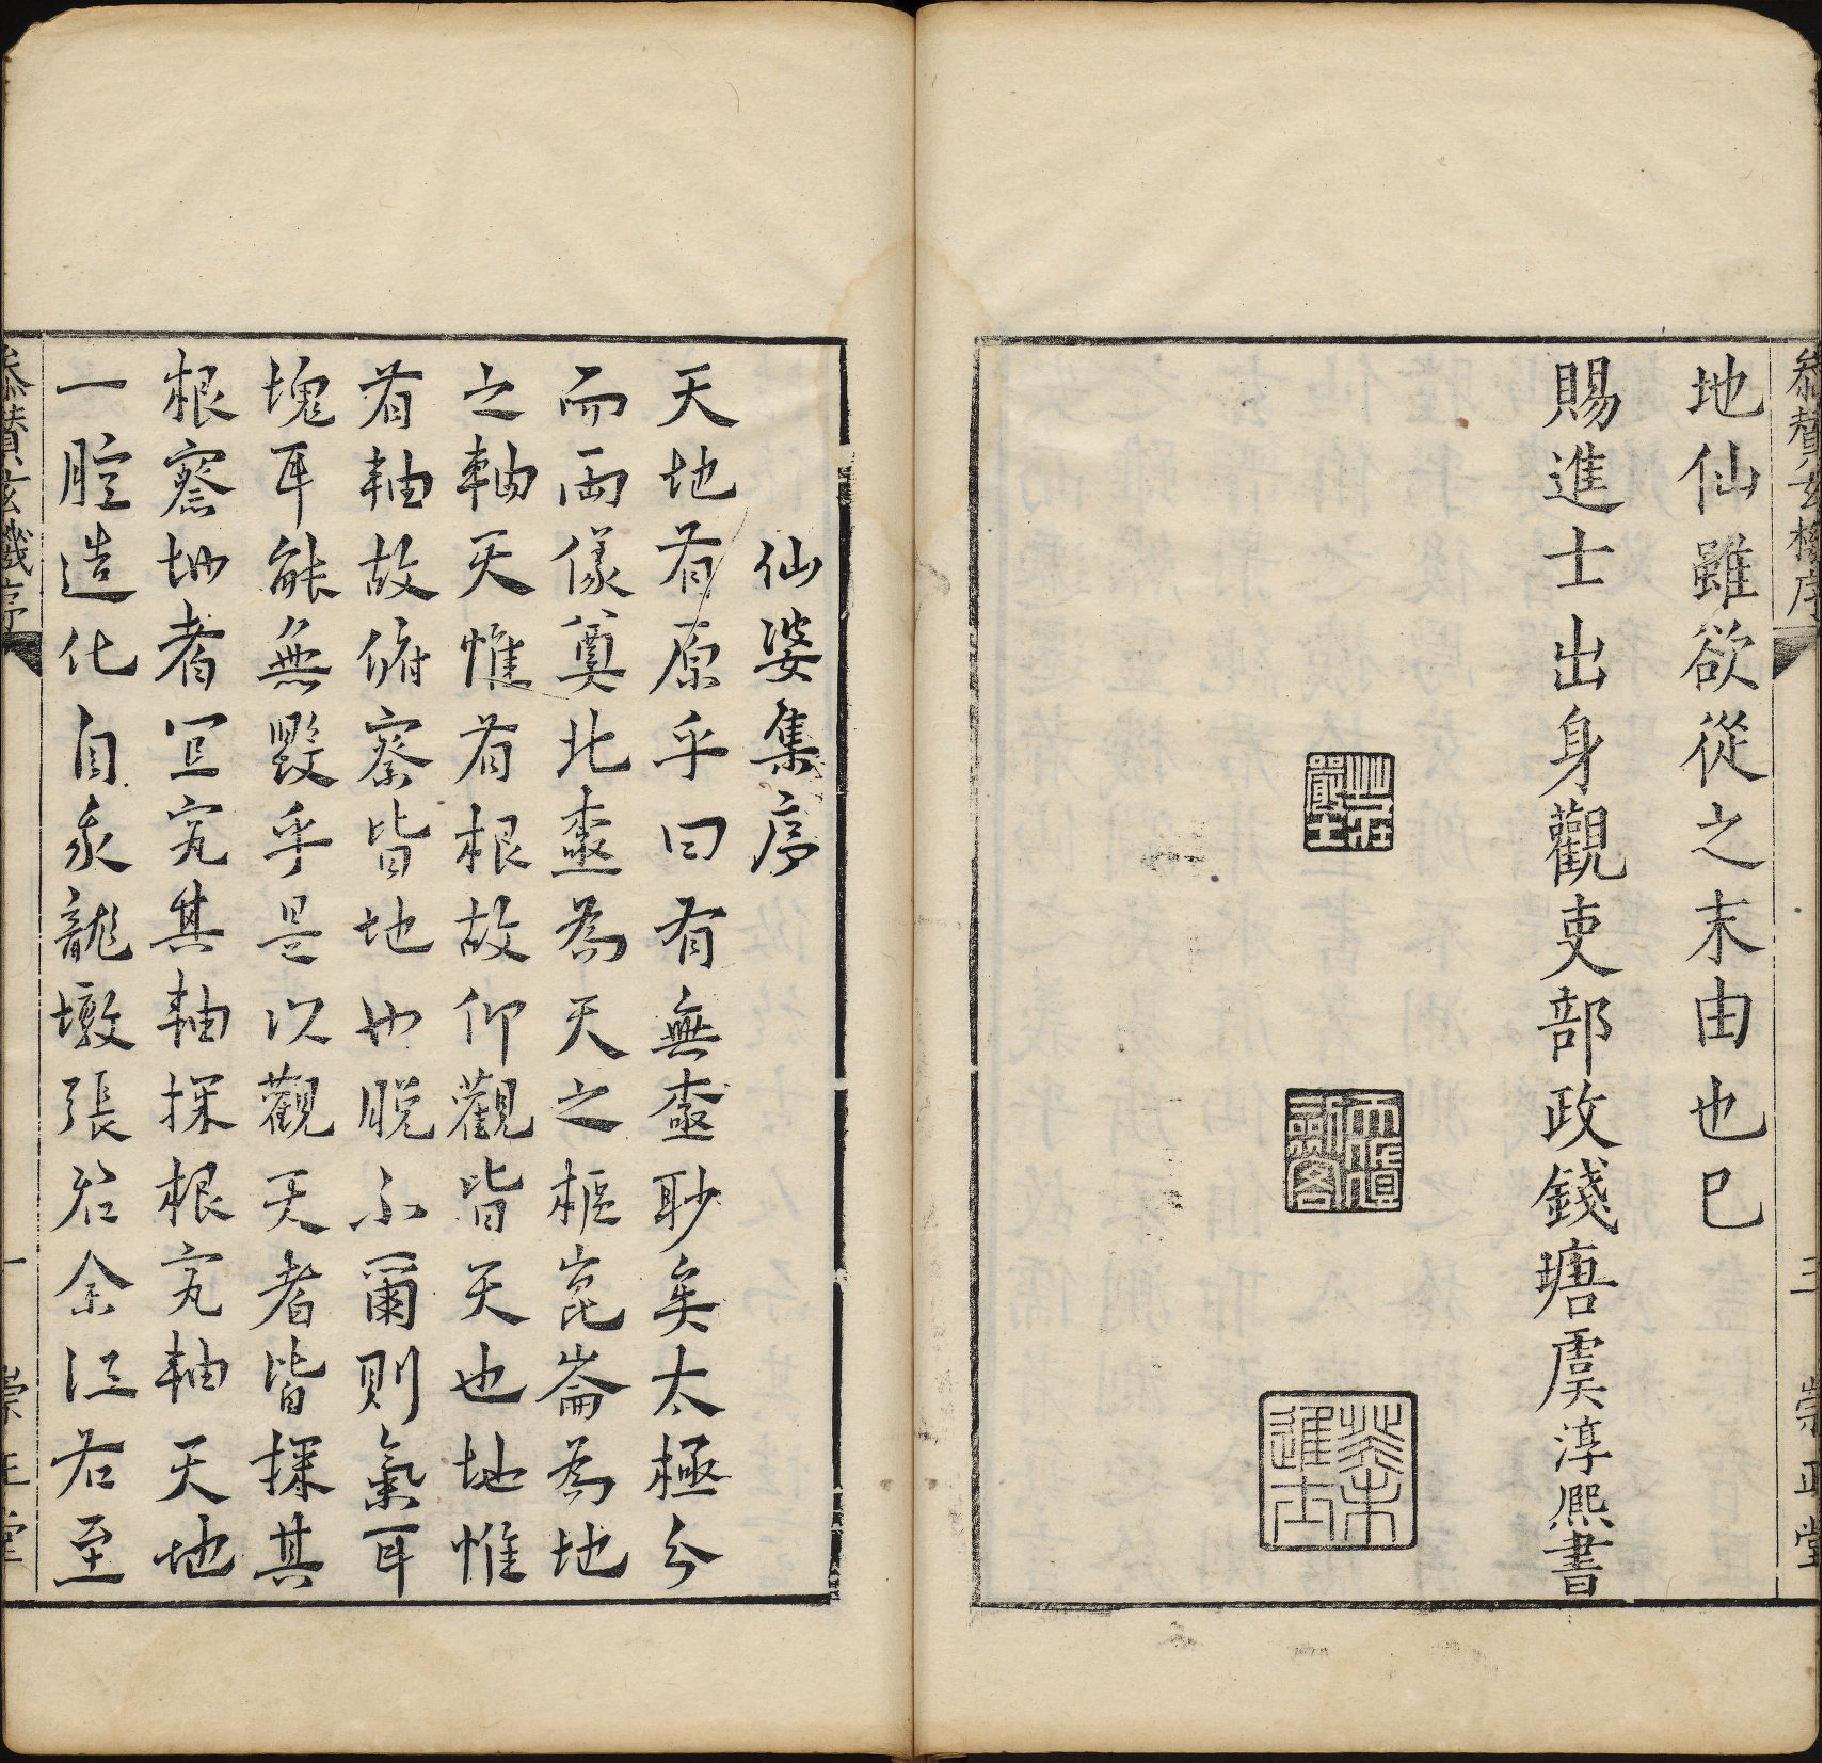 參贊玄機序 三 崇正堂
地仙雖欲從之末由也巳
賜進士出身觀吏部政錢塘虞淳熙書
癸未進士
仙婆集序
天地有原乎曰有無眇矣太極分
而兩儀奠北為天之樞崑崙為地
之軸天惟有根故仰觀皆天也地惟
有軸故俯察皆地也脫不爾則氣耳
塊耳能無毀乎是以觀天者皆探其
根察地者宜究其軸探根究軸天地
一腔造化自永龍墩張君余江右至
參贊玄機序 一 崇正堂